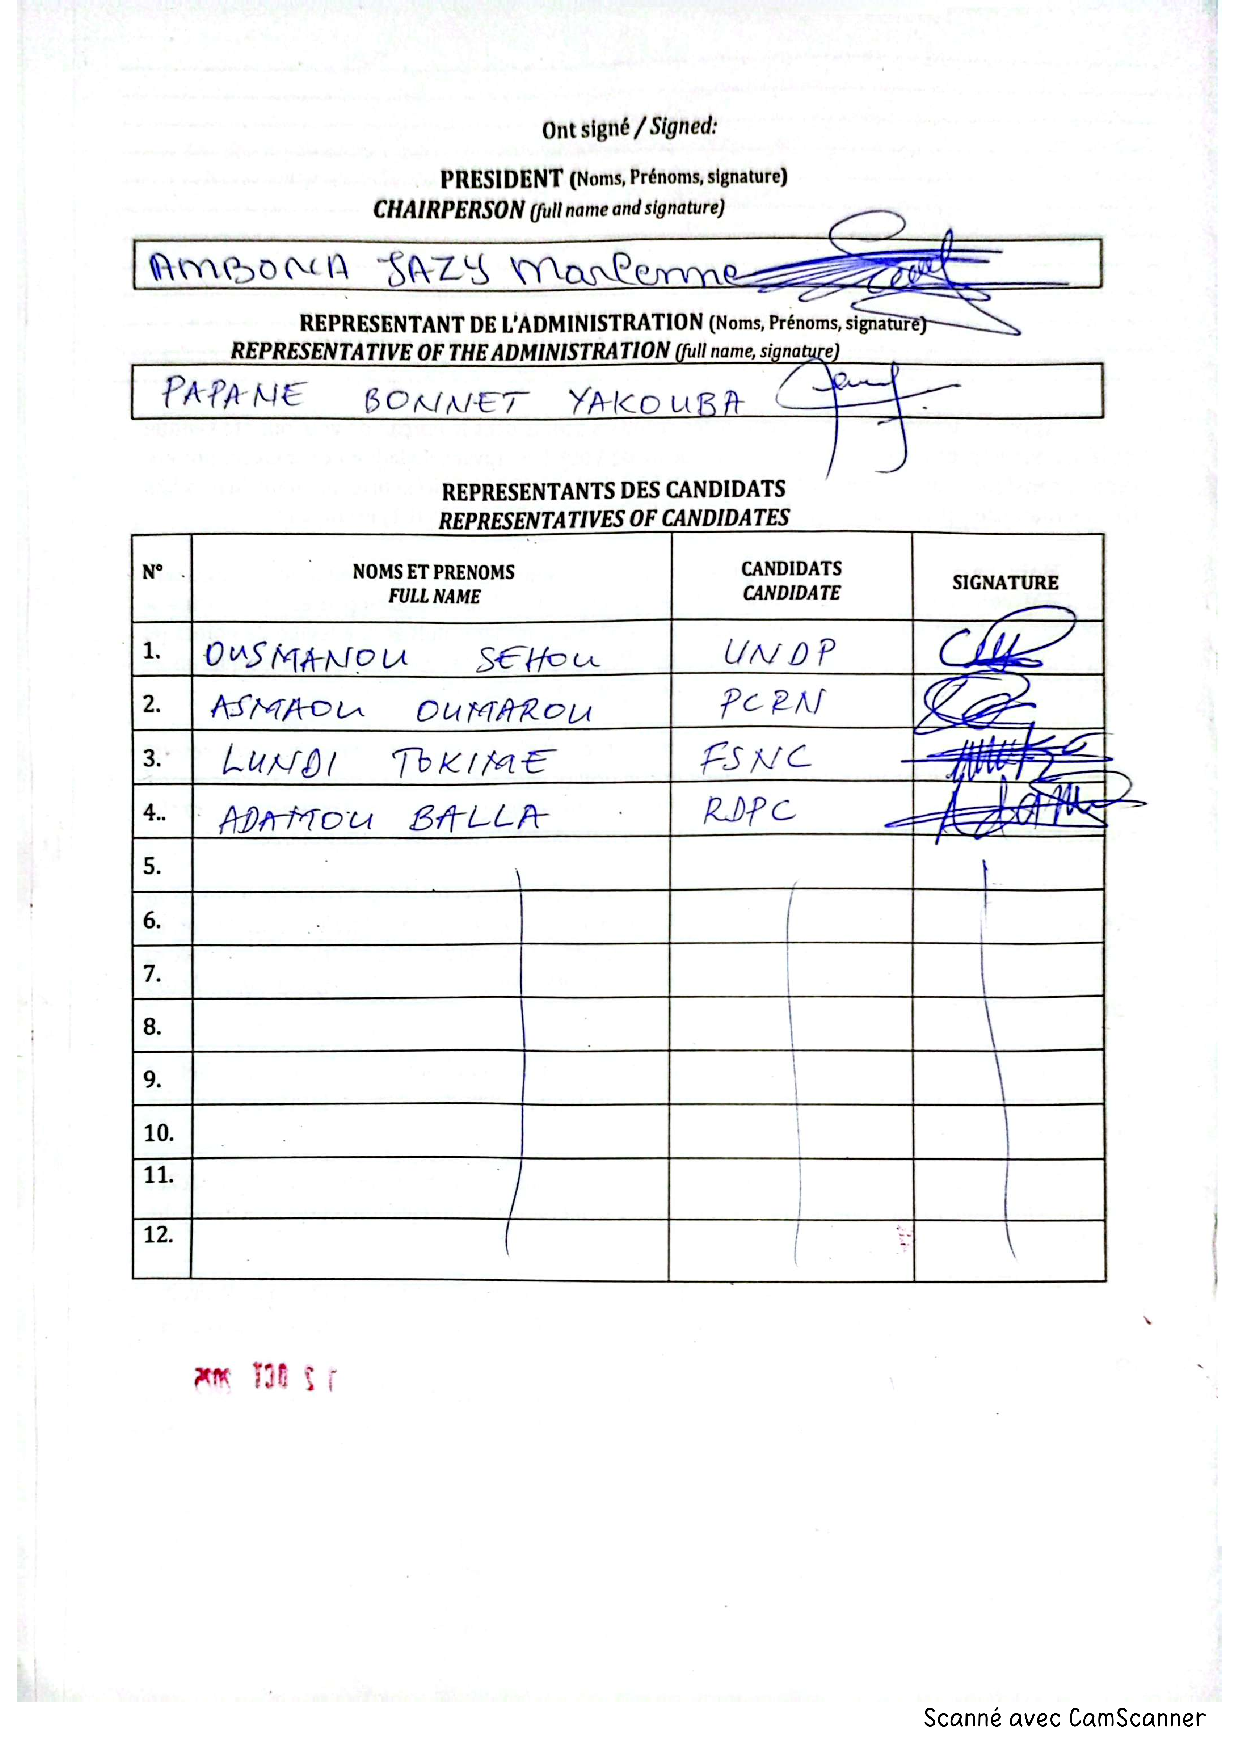 Ont signé / Signed:
PRESIDENT (Noms, Prénoms, signature)
CHAIRPERSON (full name and signature)
AMBONA JAZY Marlenne
REPRESENTANT DE L'ADMINISTRATION (Noms, Prénoms, signature)
REPRESENTATIVE OF THE ADMINISTRATION (full name, signature)
PAPANE BONNET YAKOUBA
REPRESENTANTS DES CANDIDATS
REPRESENTATIVES OF CANDIDATES
N° NOMS ET PRENOMS FULL NAME CANDIDATS CANDIDATE SIGNATURE
1. OUSMANOU SEHOU UNDP
2. ASMAOU OUMAROU PCRN
3. LUNDI TOKIME FSNC
4.. ADAMOU BALLA RDPC
5.
6.
7.
8.
9.
10.
11.
12.
Scanné avec CamScanner